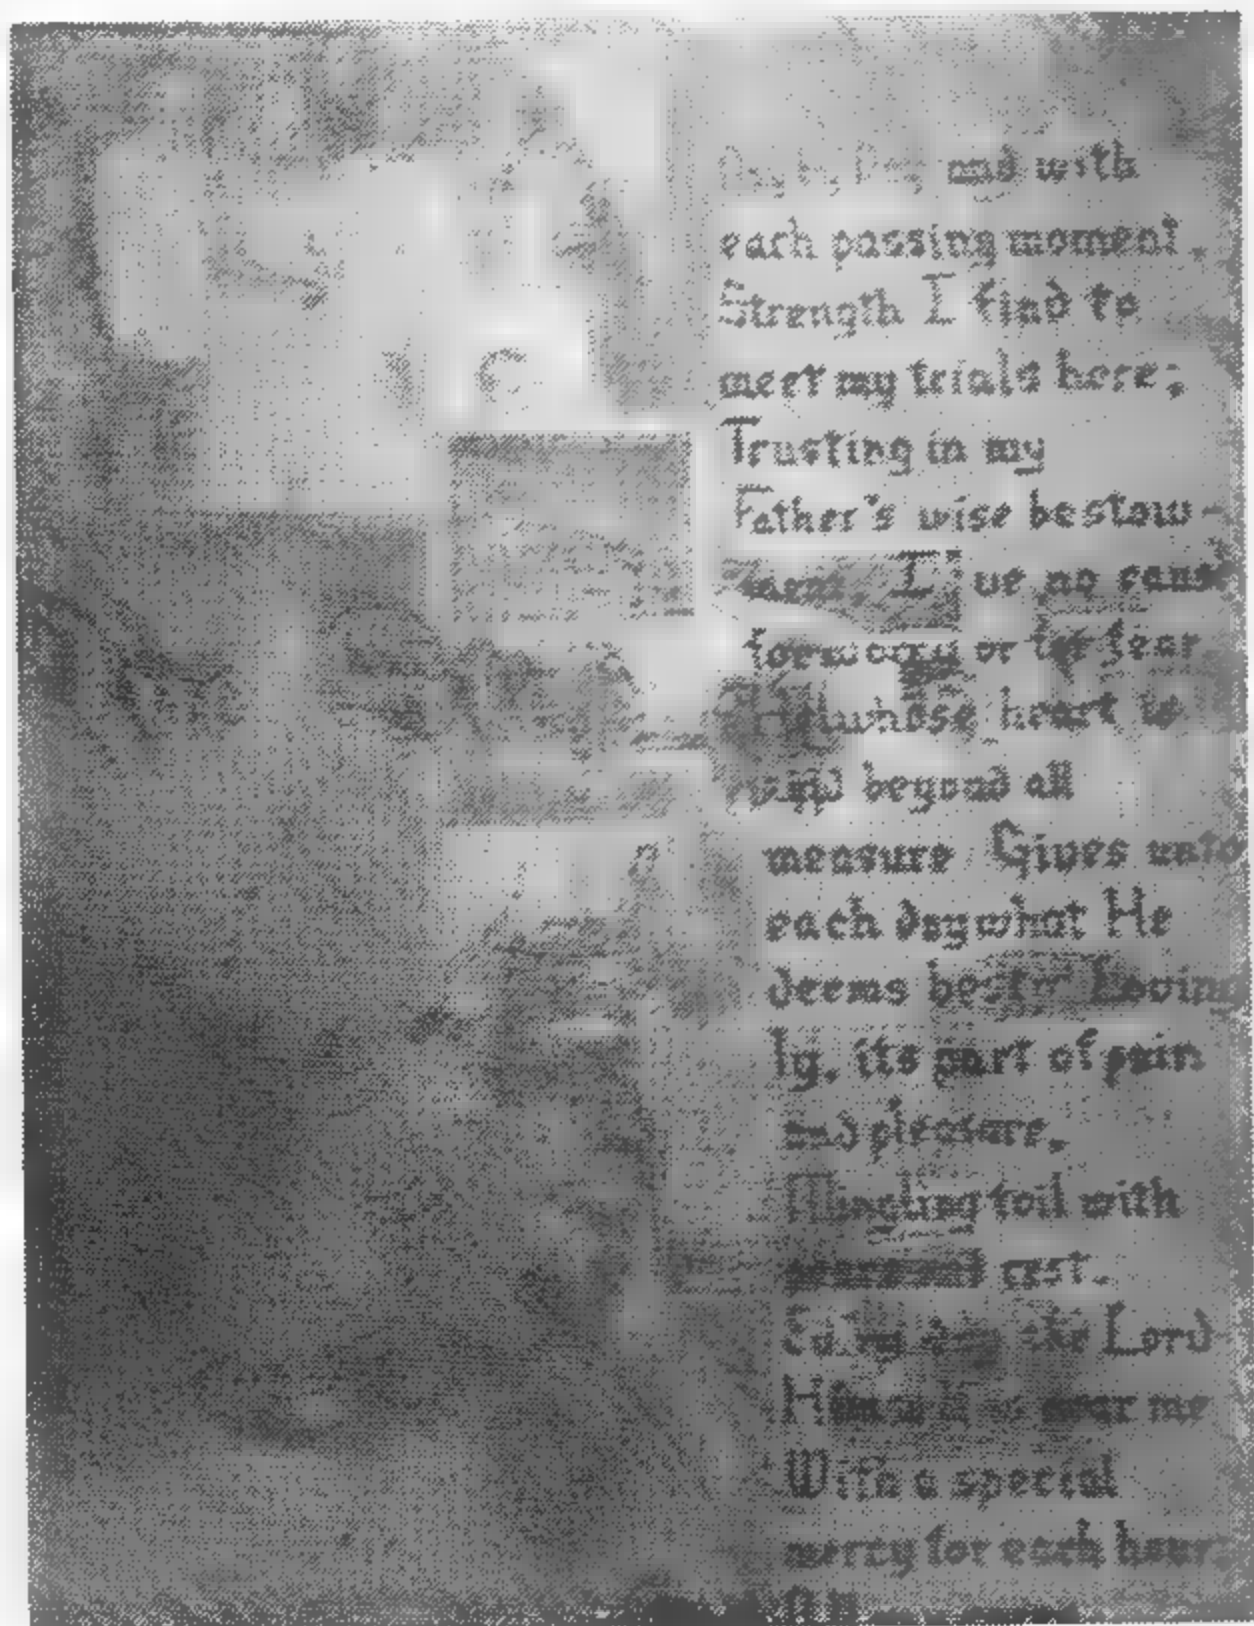 Day by Day and with
each passing moment,
Strength I find to
meet my trials here;
Trusting in my
Father's wise bestow-
ment, I've no cause
for worry or for fear
whose heart is
kind beyond all
measure Gives unto
each day what He
deems best Loving
ly, its part of pain
and pleasure,
Mingling toil with
rest.
the Lord
Himself is near me
With a special
mercy for each hour;